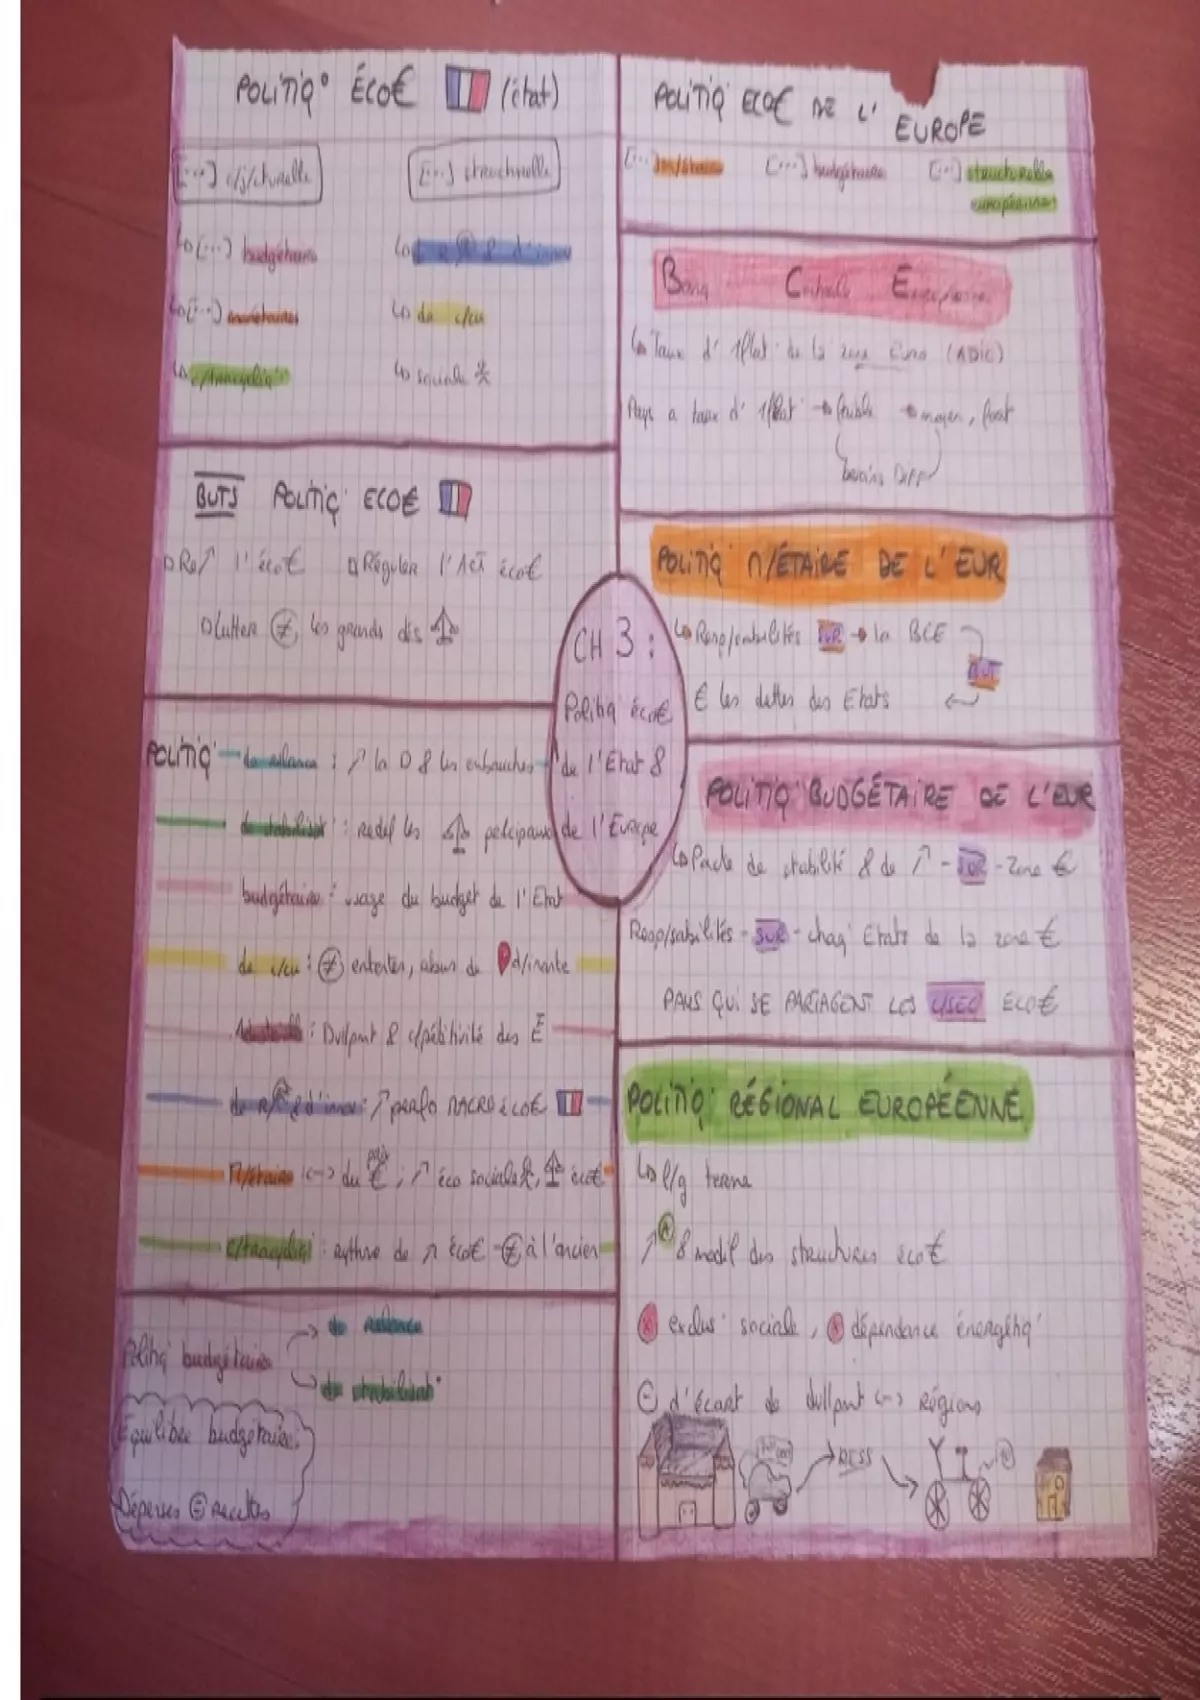 POLITIQ° ÉCO€ (état)
[...] c/j/cturelle
[...] structurelle
↳ [...] budgétaire
↳ de R & d'innov
↳ [...] monétaire
↳ de c/cu
↳ c/tracycliq'
↳ sociale
BUTS POLITIQ' ECO€
□ Re↗ l'éco€
□ Réguler l'ACT éco€
□ Lutter ≠ les grands dés
POLITIQ'
de relance : ↗ la D & les embauches
de stabilisat' : redéf les principaux
budgétaire : usage du budget de l'Etat
de c/cu : ≠ ententes, abus de d/inante
: Dvllpmt & c/pétitivité des E
de R & d'innov : ↗ perfo MACRO éco€
M/étaire (-> du prix € ; ↗ éco sociale, éco€
c/tracycliq' : rythme de ↗ éco€ ≠ à l'ancien
Politiq' budgétaire
→ de relance
↳ de stabilisat°
Equilibre budgétaire:
Dépenses = recettes
CH 3 :
Politiq éco€
de l'Etat &
de l'Europe
POLITIQ' ECO€ DE L'EUROPE
[...] m/étaire
[...] budgétaire
[...] structurelle
européenne
Banq Centrale Européenne
↳ Taux d'1flat° de la zone Euro (ADIC)
Pays a taux d'1flat° → faible → moyen, fort
besoins DIFF
POLITIQ' M/ÉTAIRE DE L'EUR
↳ Resp/sabilités SUR → la BCE
BUT
€ les dettes des Etats
POLITIQ' BUDGÉTAIRE DE L'EUR
↳ Pacte de stabilité & de ↗ - SUR - zone €
Resp/sabilités - SUR - chaq' Etats de la zone €
PAYS QUI SE PARTAGENT LES ECO€
POLITIQ' RÉGIONAL EUROPÉENNE
↳ l/g terme
↗ & modif des structures éco€
exclus° sociale, dépendance énergétiq'
⊖ d'écart de dvllpmt <-> régions